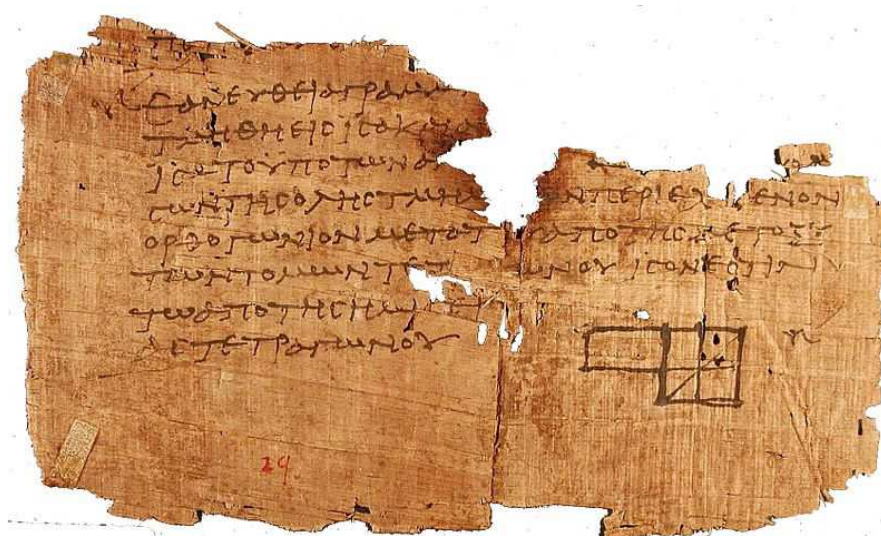 ΕΑΝΕΥΘΕΙΑΓΡΑΜΜ
ΤΜΗΘΗΕΙϹΙϹΑΚΑΙΑ
ΙϹΑΤΟΥΠΟΤΩΝΑ
ϹΩΝΤΗϹΟΛΗϹΤΜΗΜ ΩΝΠΕΡΙΕΧΟΜΕΝΟΝ
ΟΡΘΟΓΩΝΙΟΝΜΕΤΑΤΟΥΑΠΟΤΗϹΜΕΤΟΞΥ
ΤΩΝΤΟΜΩΝΤΕΤ ΩΝΟΥΙϹΟΝΕϹΤΙΝ
ΤΩΑΠΟΤΗϹΗΜΙϹΕΙ
ΑϹΤΕΤΡΑΓΩΝΟΥ
29